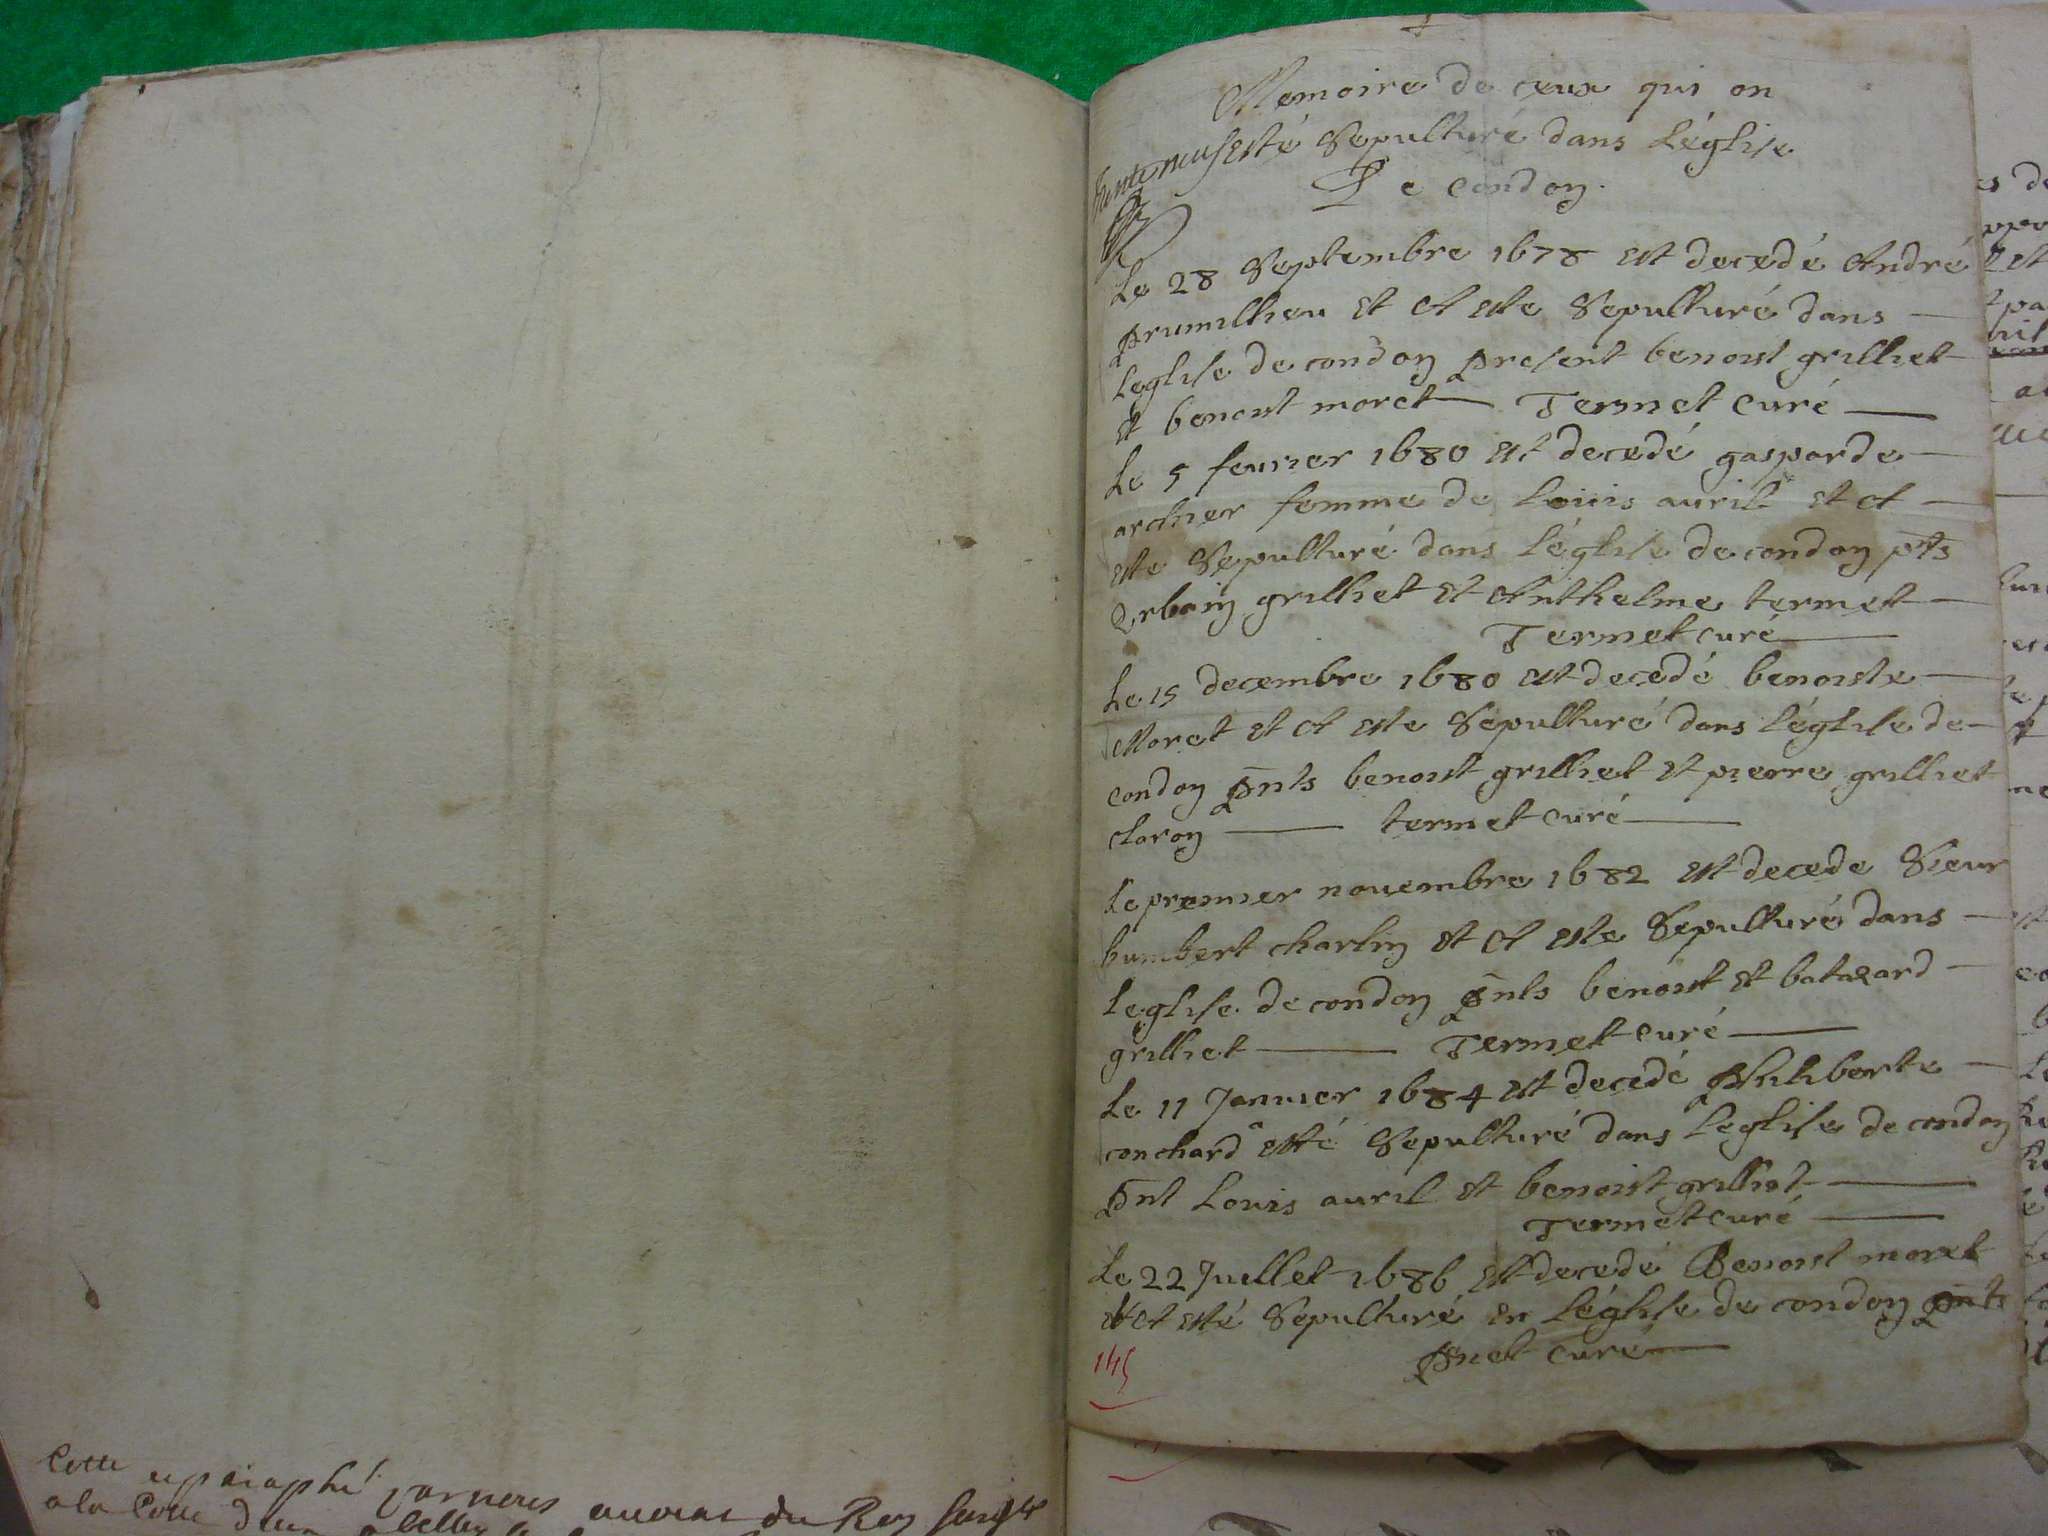 Memoire de ceux qui on
esté Sepulturé dans L'église
De Condon.
Le 28 Septembre 1678 est decedé André
prumillieu et A este Sepulturé dans
Leglise de condon present benoist grilliet
et benoist moret Termet curé
Le 5 feurier 1680 est decedé gasparde
archer femme de Louis auril et A
este Sepulturé dans L'église de condon pnts
Vrbain grilliet et Anthelme termet
Termet curé
Le 15 decembre 1680 est decedé benoiste
Moret et A este Sepulturé dans L'église de
condon pnts benoist grilliet et pierre grilliet
claron termet curé
Le premier nouembre 1682 est decede Sieur
humbert charlin et A este Sepulturé dans
Leglise de condon pnts benoist et batazard
grilliet Termet curé
Le 11 Januier 1684 est decedé philiberte
conchard a esté Sepulturé dans Leglise de condon
pnt Louis auril et benoist grilliet
Termet curé
Le 22 Juillet 1686 est decedé Benoist moret
et A esté Sepulturé en L'église de condon pnts
curé
145
Cotté et paraphé par nous auocat du Roy
a la